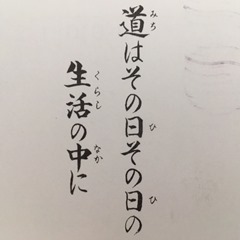 道はその日その日の
生活の中に